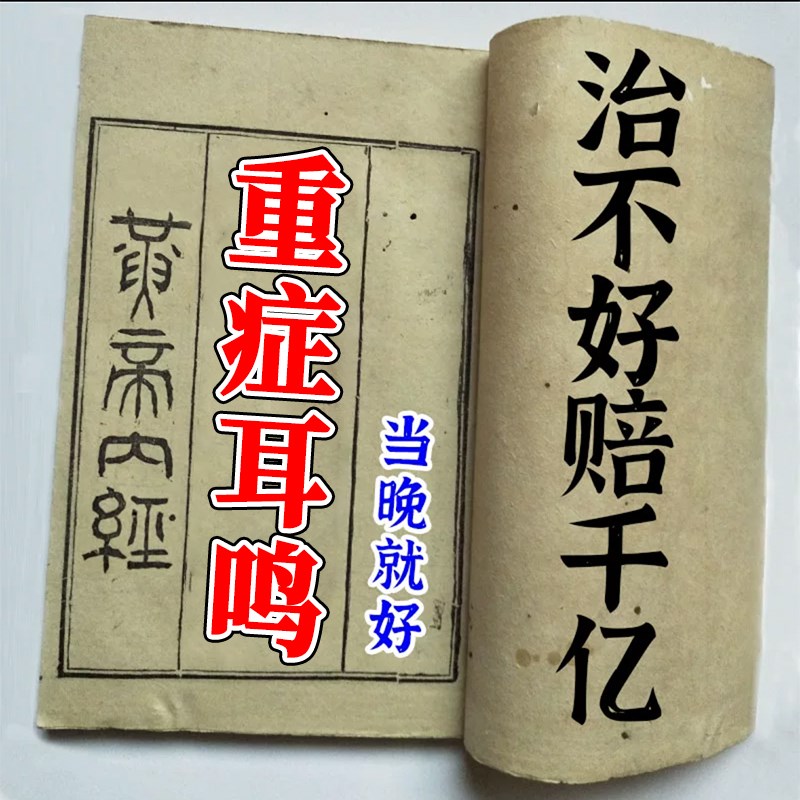 治不好赔千亿
当晚就好
重症耳鸣
黄帝内經